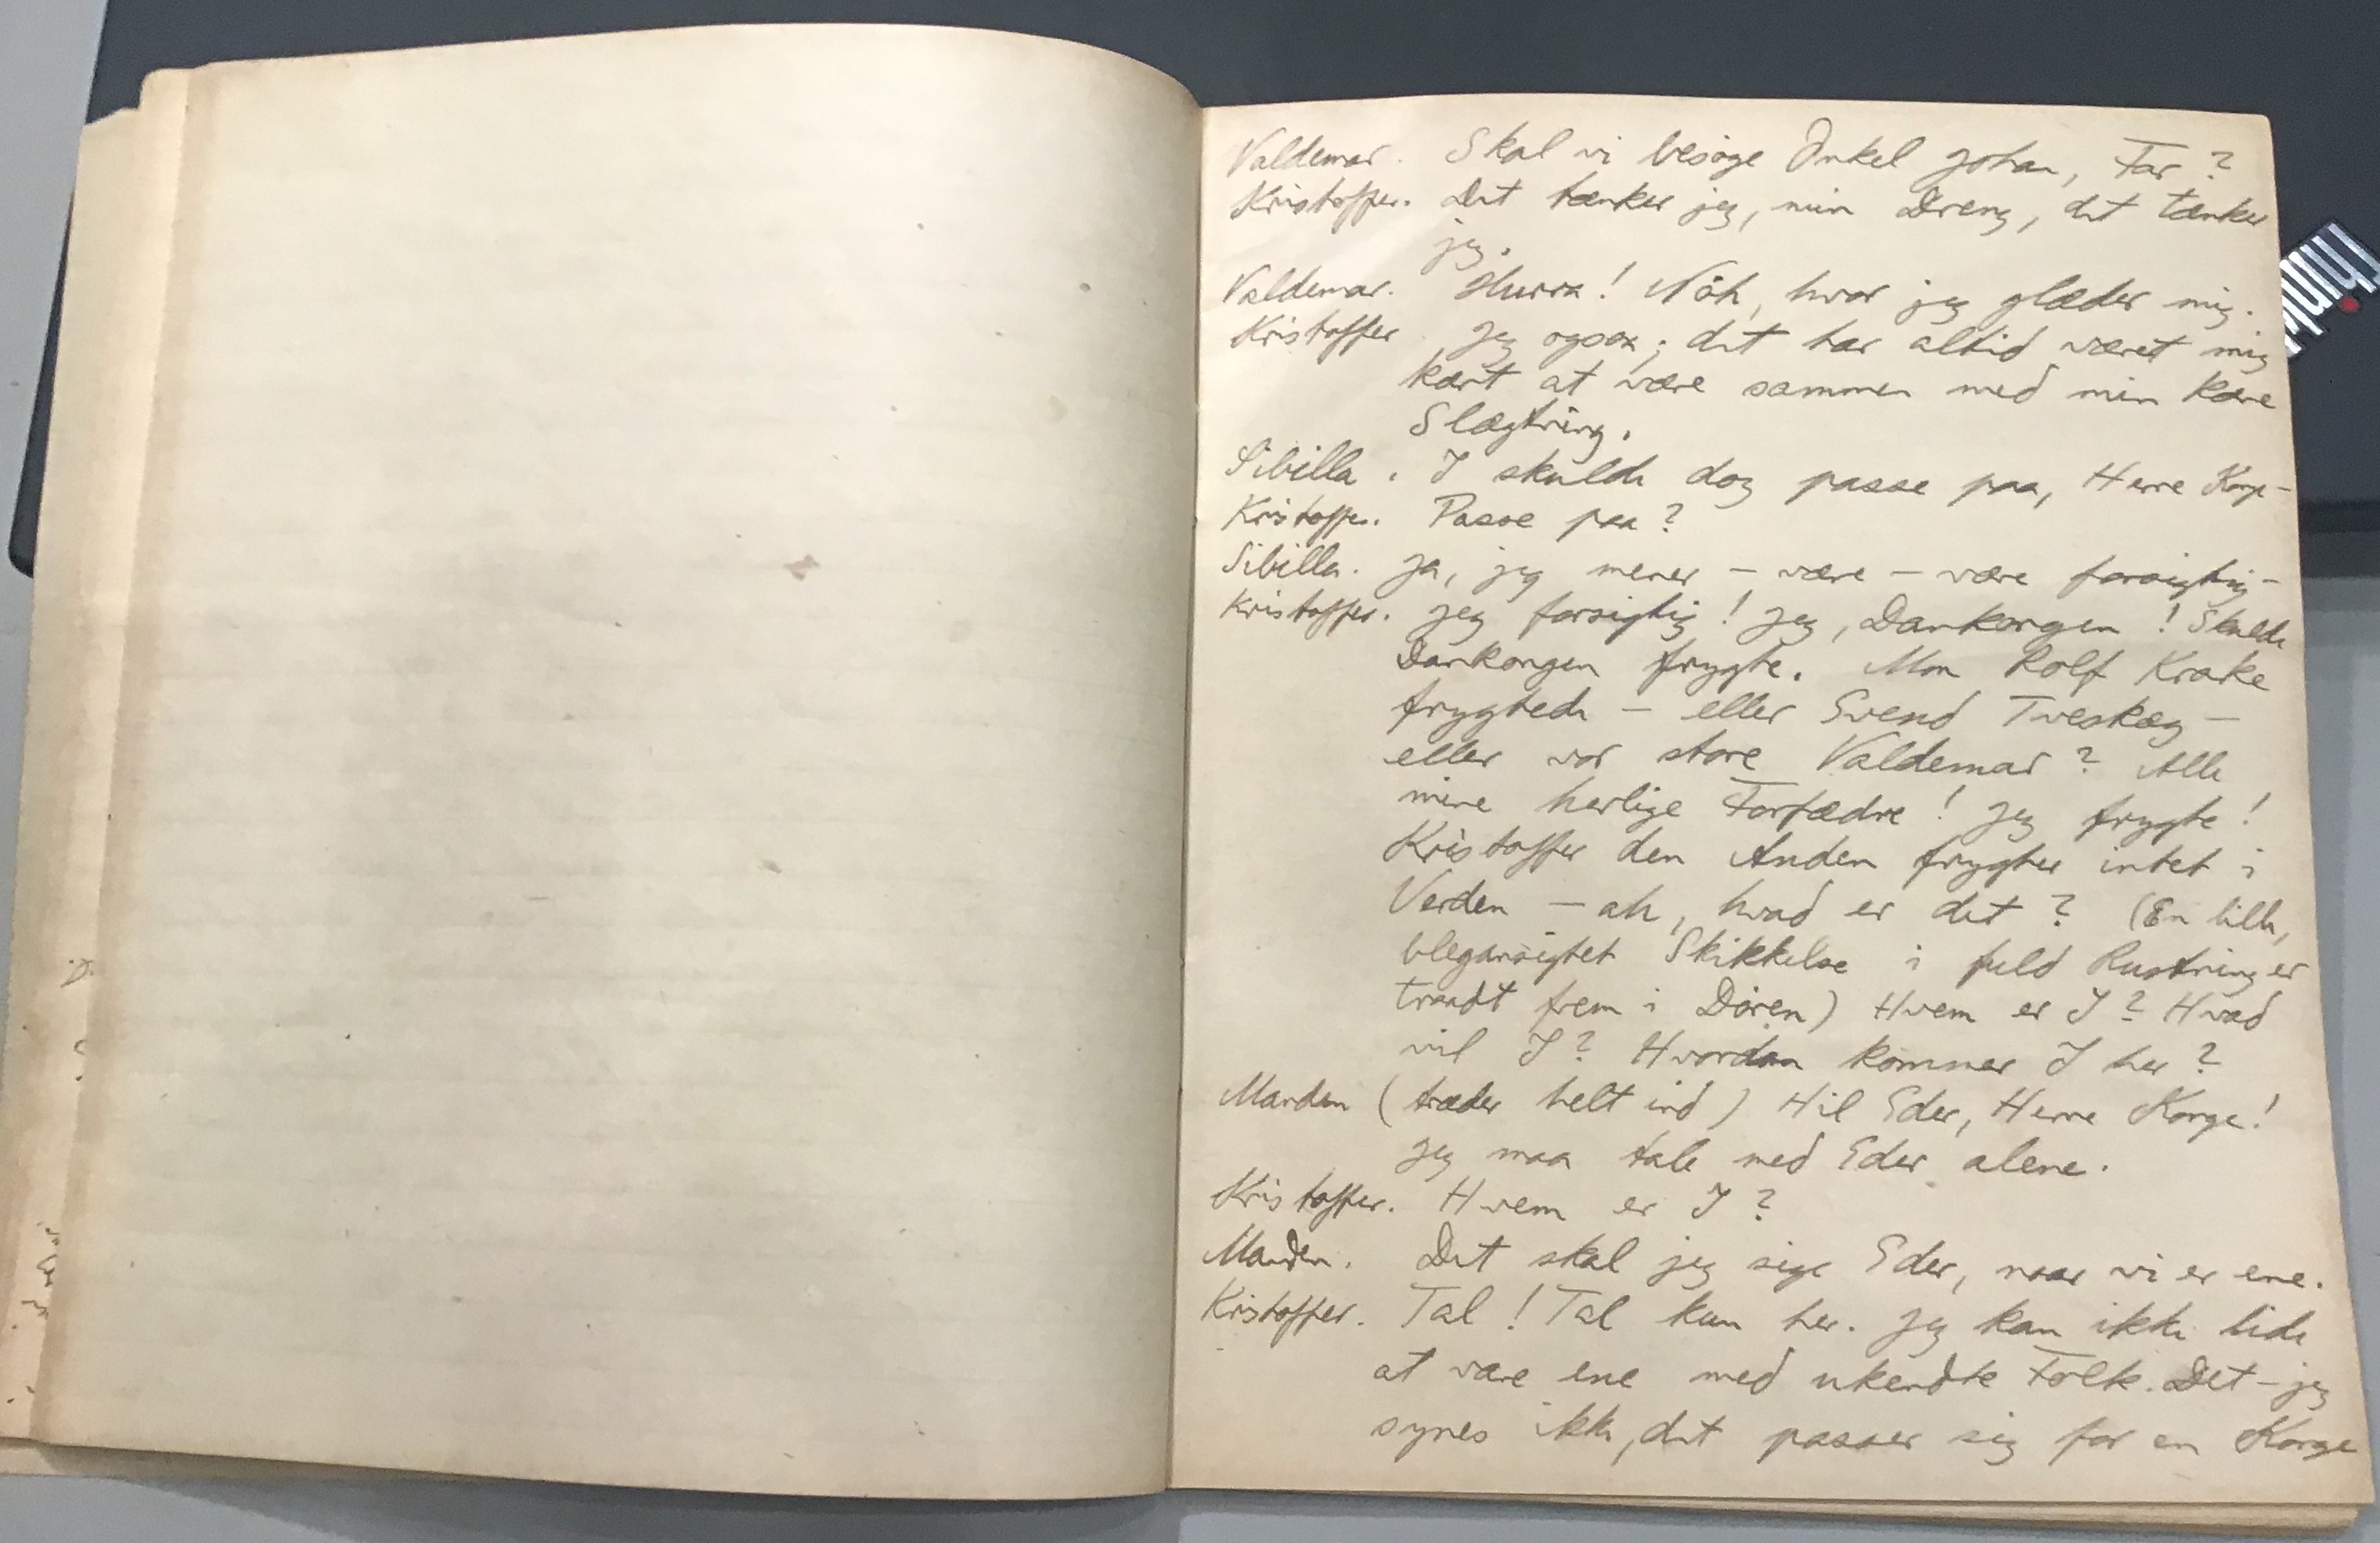 Valdemar. Skal vi besöge Onkel Johan, Far?
Kristoffer. Det tænker jeg, min Dreng, det tænker
jeg.
Valdemar. Hurra! Nöh, hvor jeg glæder mig.
Kristoffer Jeg ogsaa; det har altid været mig
kært at være sammen med min kære
Slægtning.
Sibilla. I skulde dog passe paa, Herre Konge-
Kristoffer. Passe paa?
Sibilla. Ja, jeg mener - være - være forsigtig-
Kristoffer. Jeg forsigtig! Jeg, Dankongen! Skulde
Dankongen frygte. Mon Rolf Krake
frygtede - eller Svend Tveskæg -
eller vor store Valdemar? Alle
mine herlige Forfædre! Jeg frygte!
Kristoffer den Anden frygter intet i
Verden - ah, hvad er det? (En lille,
blegansigtet Skikkelse i fuld Rustning er
traadt frem i Dören) Hvem er I? Hvad
vil I? Hvordan kommer I her?
Manden (træder helt ind) Hil Eder, Herre Konge!
Jeg maa tale med Eder alene.
Kristoffer. Hvem er I?
Manden. Det skal jeg sige Eder, naar vi er ene.
Kristoffer. Tal! Tal kun her. Jeg kan ikke lide
at være ene med ukendte Folk. Det - jeg
synes ikke, det passer sig for en Konge